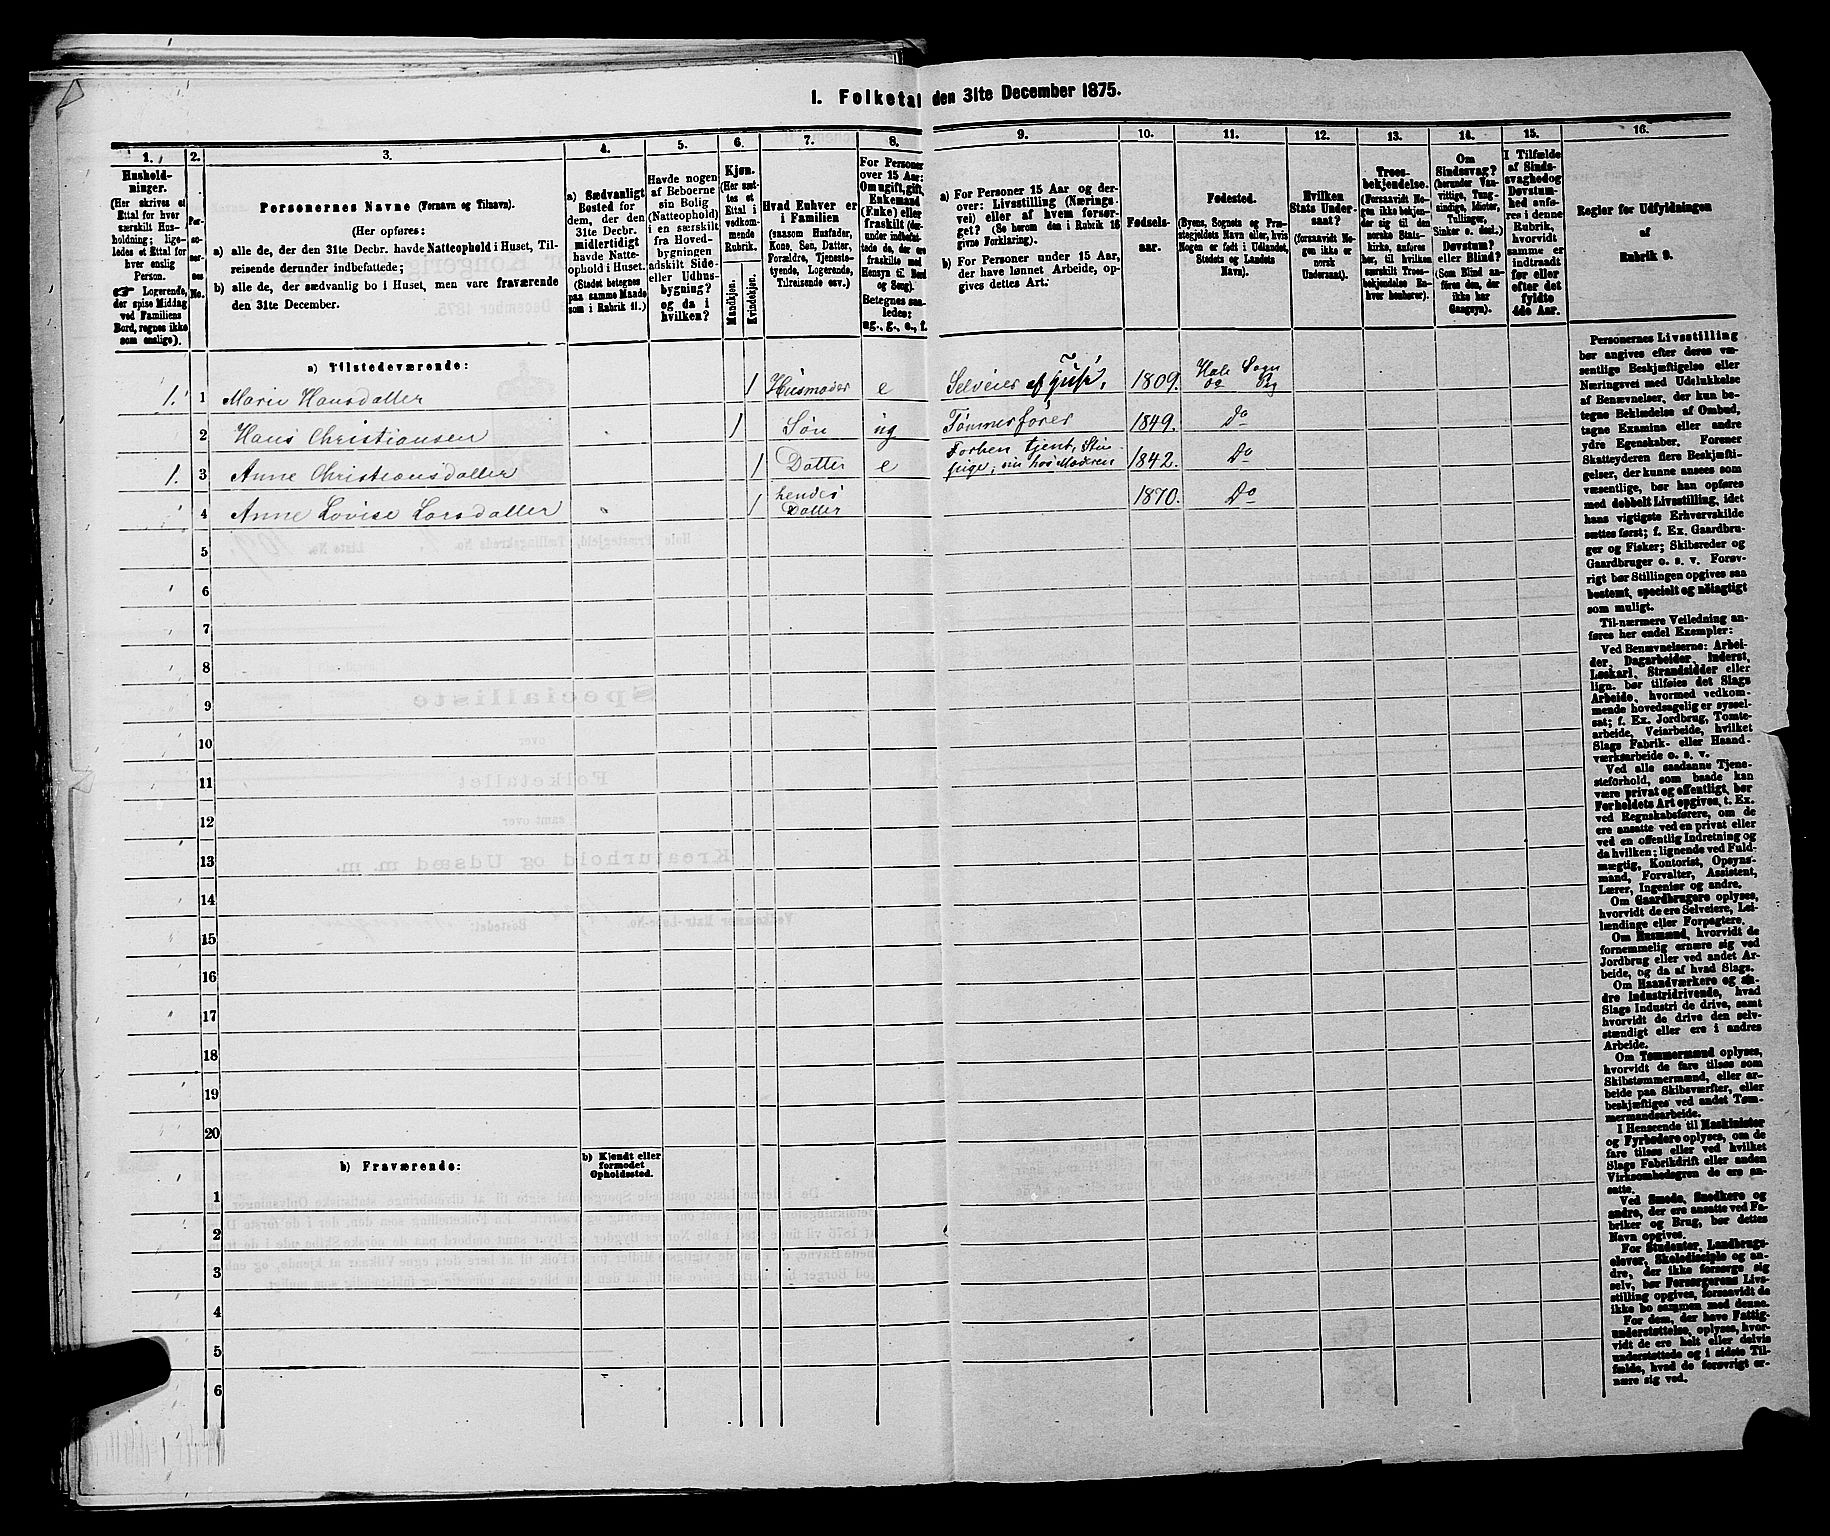 I. Folketal den 31te December 1875.
1. 2. 3. 4. 5. 6. 7. 8. 9. 10. 11. 12. 13. 14. 15. 16.
Hushold-
ninger.
(Her skrives et
Ettal for hver
særskilt Hus-
holdning; lige-
ledes et Ettal for
hver enslig
Person.
☞ Logerende,
der spise Middag
ved Familiens
Bord, regnes ikke
som enslige).
Per-
so-
ner-
nes
No.
Personernes Navne (Fornavn og Tilnavn).
(Her opføres:
a) alle de, der den 31te Decbr. havde Natteophold i Huset, Til-
reisende derunder indbefattede;
b) alle de, der sædvanlig bo i Huset, men vare fraværende
den 31te December.
a) Sædvanligt
Bosted for
dem, der den
31te Decbr.
midlertidigt
havde Natte-
ophold i Huset.
(Stedet betegnes
paa samme Maade
som i Rubrik 11.)
Havde nogen
af Beboerne
sin Bolig
(Natteophold)
i en særskilt
fra Hoved-
bygningen
adskilt Side-
eller Udhus-
bygning?
og da i
hvilken?
Kjøn.
(Her sæt-
tes et
Ettal i
vedkom-
mende
Rubrik.
Mandkjøn.
Kvindekjøn.
Hvad Enhver er
i Familien
(saasom Husfader,
Kone, Søn, Datter,
Forældre, Tjeneste-
tyende, Logerende,
Tilreisende osv.)
For Personer
over 15 Aar:
Om ugift, gift,
Enkemand
(Enke) eller
fraskilt (der-
under indbefat-
tede de, der ere
fraskilte med
Hensyn til Bord
og Seng).
Betegnes saa-
ledes:
ug., g., e., f.
a) For Personer 15 Aar og der-
over: Livsstilling (Nærings-
vei) eller af hvem forsør-
get? (Se herom den i Rubrik 16
givne Forklaring).
b) For Personer under 15 Aar,
der have lønnet Arbeide, op-
gives dettes Art.
Fødsels-
aar.
Fødested.
(Byens, Sognets og Præ-
stegjeldets Navn eller, hvis
Nogen er født i Udlandet,
Stedets og Landets
Navn).
Hvilken
Stats Under-
saat?
(forsaavidt No-
gen ikke er
norsk
Undersaat).
Troes-
bekjendelse.
(Forsaavidt No-
gen ikke bekjen-
der sig til den
norske Stats-
kirke, anføres
her, til hvilken
særskilt Troes-
bekjendelse En-
hver henhører).
Om
Sindssvag?
(herunder Van-
vittige, Tung-
sindige, Idioter,
Tullinger,
Sinker o. desl.)
Døvstum?
eller Blind?
(Som Blind an-
føres den, der
ikke har
Gangsyn).
I Tilfælde
af Sinds-
svaghed og
Døvstum-
hed anfø-
res i denne
Rubrik,
hvorvidt
samme er
indtraadt
før eller
efter det
fyldte
4de Aar.
Regler for Udfyldningen
af
Rubrik 9.
a) Tilstedeværende:
1. 1 Marie Hansdatter 1 Husmoder e Selveier af Jord, 1809. Hole Sogn
og Pg
2 Hans Christiansen 1 Søn ug Tømmerfører 1849. Do
1. 3 Anne Christiansdatter 1 Datter e 1842. Do
4 Anne Lovise Larsdatter 1 hendes
Datter 1870. Do
5
6
7
8
9
10
11
12
13
14
15
16
17
18
19
20
b) Fraværende:
b) Kjendt eller
formodet
Opholdssted.
1
2
3
4
5
6
Personernes Livsstilling
bør angives efter deres væ-
sentlige Beskjæftigelse eller
Næringsvei med Udelukkelse
af Benævnelser, der kun be-
tegne Beklædelse af Ombud,
tagne Examina eller andre
ydre Egenskaber. Forener
Skatteyderen flere Beskjæfti-
gelser, der kunne ansees som
væsentlige, bør han opføres
med dobbelt Livsstilling, idet
hans vigtigste Erhvervskilde
sættes først; f. Ex. Gaardbru-
ger og Fisker; Skibsreder og
Gaardbruger o. s. v. Forøv-
rigt bør Stillingen opgives saa
bestemt, specielt og nøiagtigt
som muligt.
Til nærmere Veiledning an-
føres her endel Exempler:
Ved Benævnelserne: Arbei-
der, Dagarbeider, Inderst,
Løskarl, Strandsidder eller
lign. bør tilføies det Slags
Arbeide, hvormed vedkom-
mende hovedsagelig er syssel-
sat; f. Ex. Jordbrug, Tomte-
arbeide, Veiarbeide, hvilket
Slags Fabrik- eller Haand-
værksarbeide o. s. v.
Ved alle saadanne Tjene-
steforhold, som baade kan
være privat og offentligt, bør
Forholdets Art opgives, t. Ex.
ved Regnskabsførere, om de
ere ansatte ved en privat eller
ved en offentlig Indretning og
da hvilken; lignende ved Fuld-
mægtig, Kontorist, Opsyns-
mand, Forvalter, Assistent,
Lærer, Ingeniør og andre.
Om Gaardbrugere oplyses,
hvorvidt de ere Selveiere, Lei-
lændinge eller Forpagtere.
Om Husmænd, hvorvidt de
fornemmelig ernære sig ved
Jordbrug eller ved andet Ar-
beide, og da af hvad Slags.
Om Haandværkere og an-
dre Industridrivende, hvad
Slags Industri de drive, samt
hvorvidt de drive den selv-
stændigt eller ere i andres
Arbeide.
Om Tømmermænd oplyses,
hvorvidt de fare tilsøs som
Skibstømmermænd, eller ar-
beide paa Skibsværfter, eller
beskjæftiges ved andet Tøm-
mermandsarbeide.
I Henseende til Maskinister
og Fyrbødere oplyses, om de
fare tilsøs eller ved hvilket
Slags Fabrikdrift eller anden
Virksomhedsgren de ere an-
satte.
Ved Smede, Snedkere og
andre, der ere ansatte ved Fa-
briker og Brug, bør dettes
Navn opgives.
For Studenter, Landbrugs-
elever, Skoledisciple og an-
dre, der ikke forsørge sig
selv, bør Forsørgerens Livs-
stilling opgives, forsaavidt de
ikke bo sammen med denne.
For dem, der have Fattig-
understøttelse, oplyses, hvor-
vidt de ere helt eller delvis
understøttede og i sidste Til-
fælde, hvad de forøvrigt er-
nære sig ved.